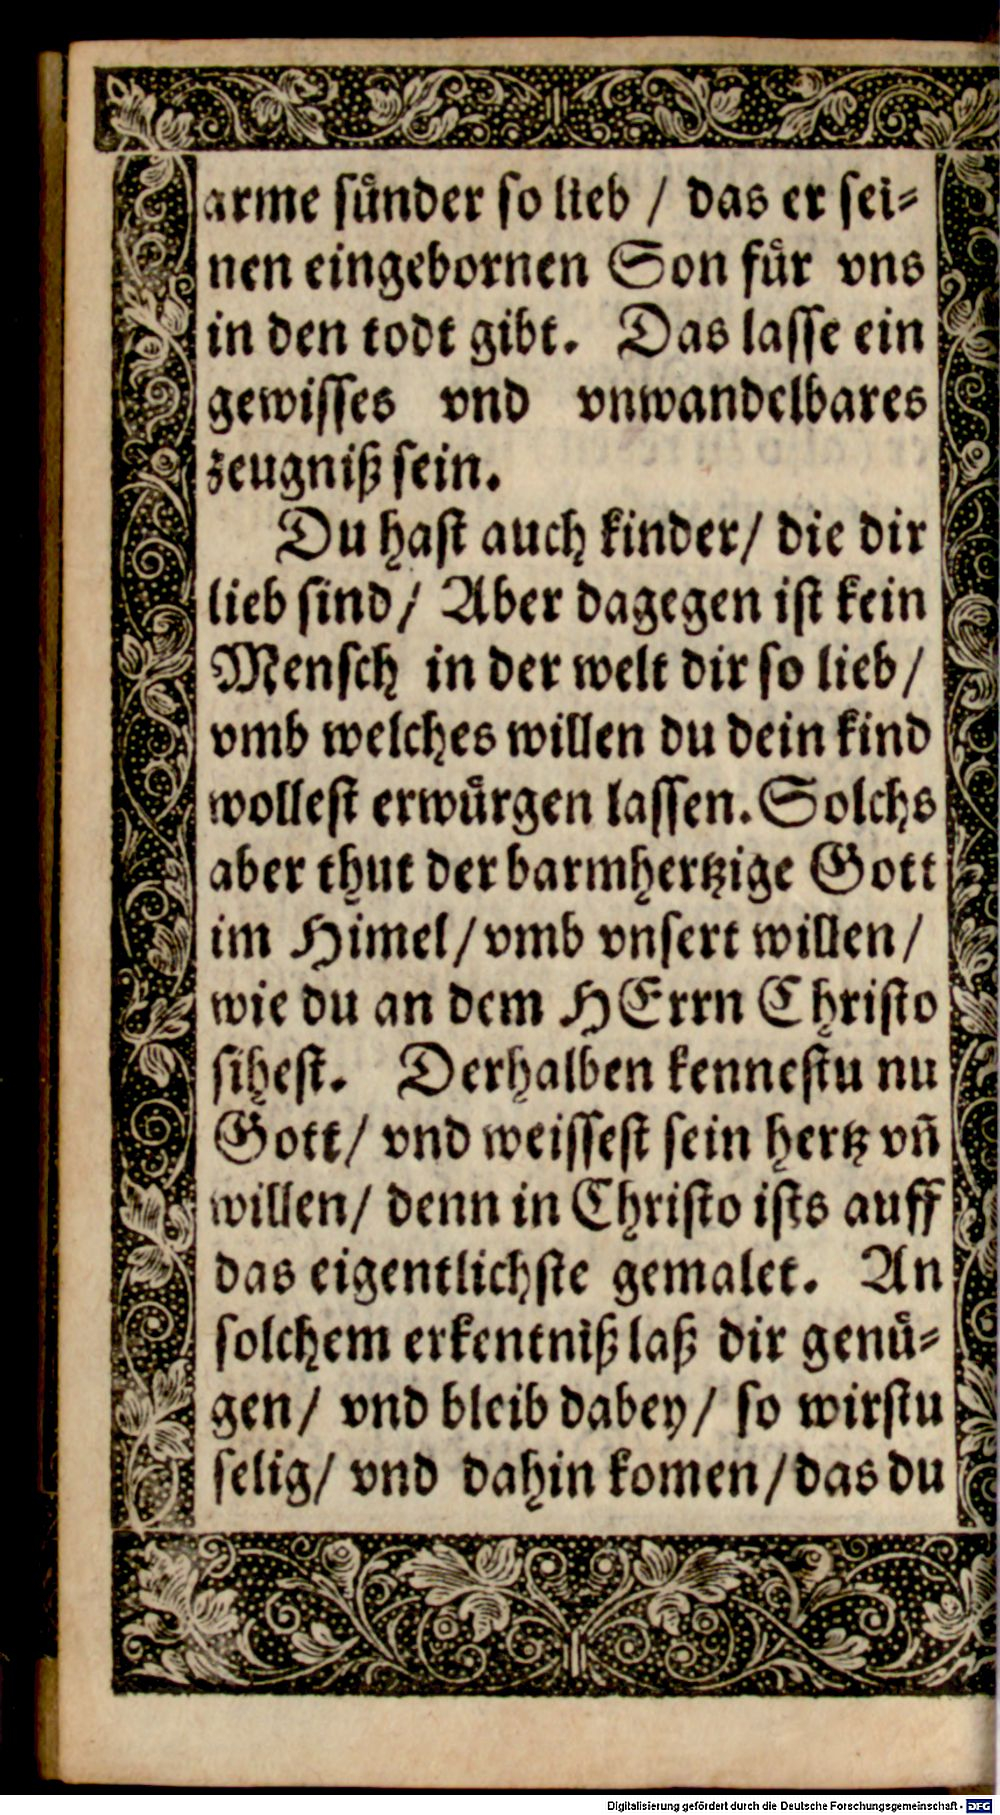 arme sünder so lieb / das er sei-
nen eingebornen Son für vns
in den todt gibt. Das lasse ein
gewisses vnd vnwandelbares
zeugniß sein.
Du hast auch kinder / die dir
lieb sind / Aber dagegen ist kein
Mensch in der welt dir so lieb /
vmb welches willen du dein kind
wollest erwürgen lassen. Solchs
aber thut der barmhertzige Gott
im Himel / vmb vnsert willen /
wie du an dem HErrn Christo
sihest. Derhalben kennestu nu
Gott / vnd weissest sein hertz vñ
willen / denn in Christo ists auff
das eigentlichste gemalet. An
solchem erkentniß laß dir genü-
gen / vnd bleib dabey / so wirstu
selig / vnd dahin komen / das du
Digitalisierung gefördert durch die Deutsche Forschungsgemeinschaft - DFG